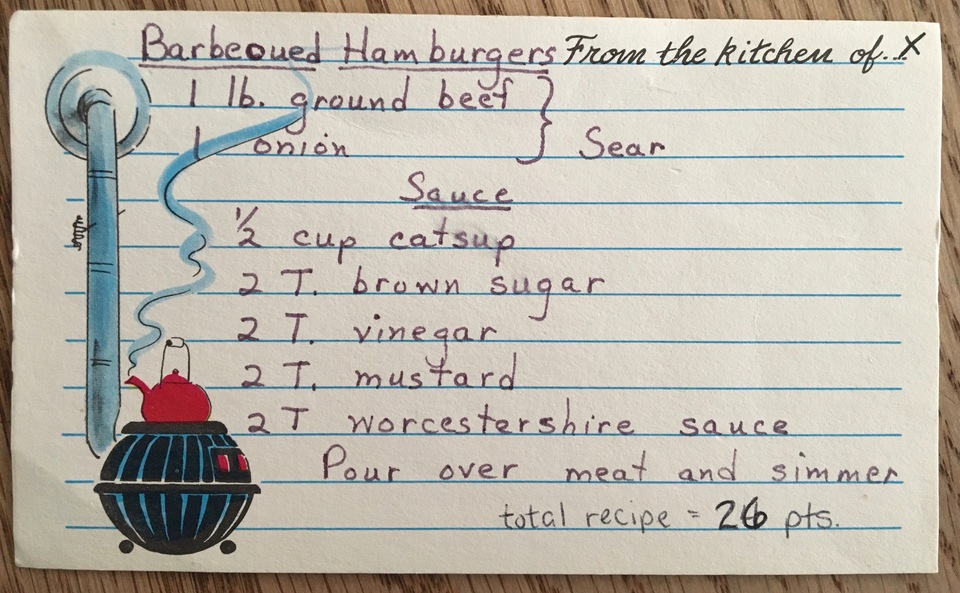 Barbecued Hamburgers From the kitchen of...X
1 lb. ground beef
1 onion } Sear
Sauce
½ cup catsup
2 T. brown sugar
2 T. vinegar
2 T. mustard
2 T worcestershire sauce
Pour over meat and simmer
total recipe = 26 pts.